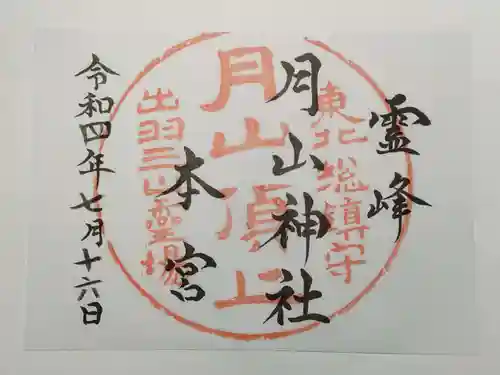 霊峰
月山神社
本宮
令和四年七月十六日
東北総鎮守
月山頂上
出羽三山霊場